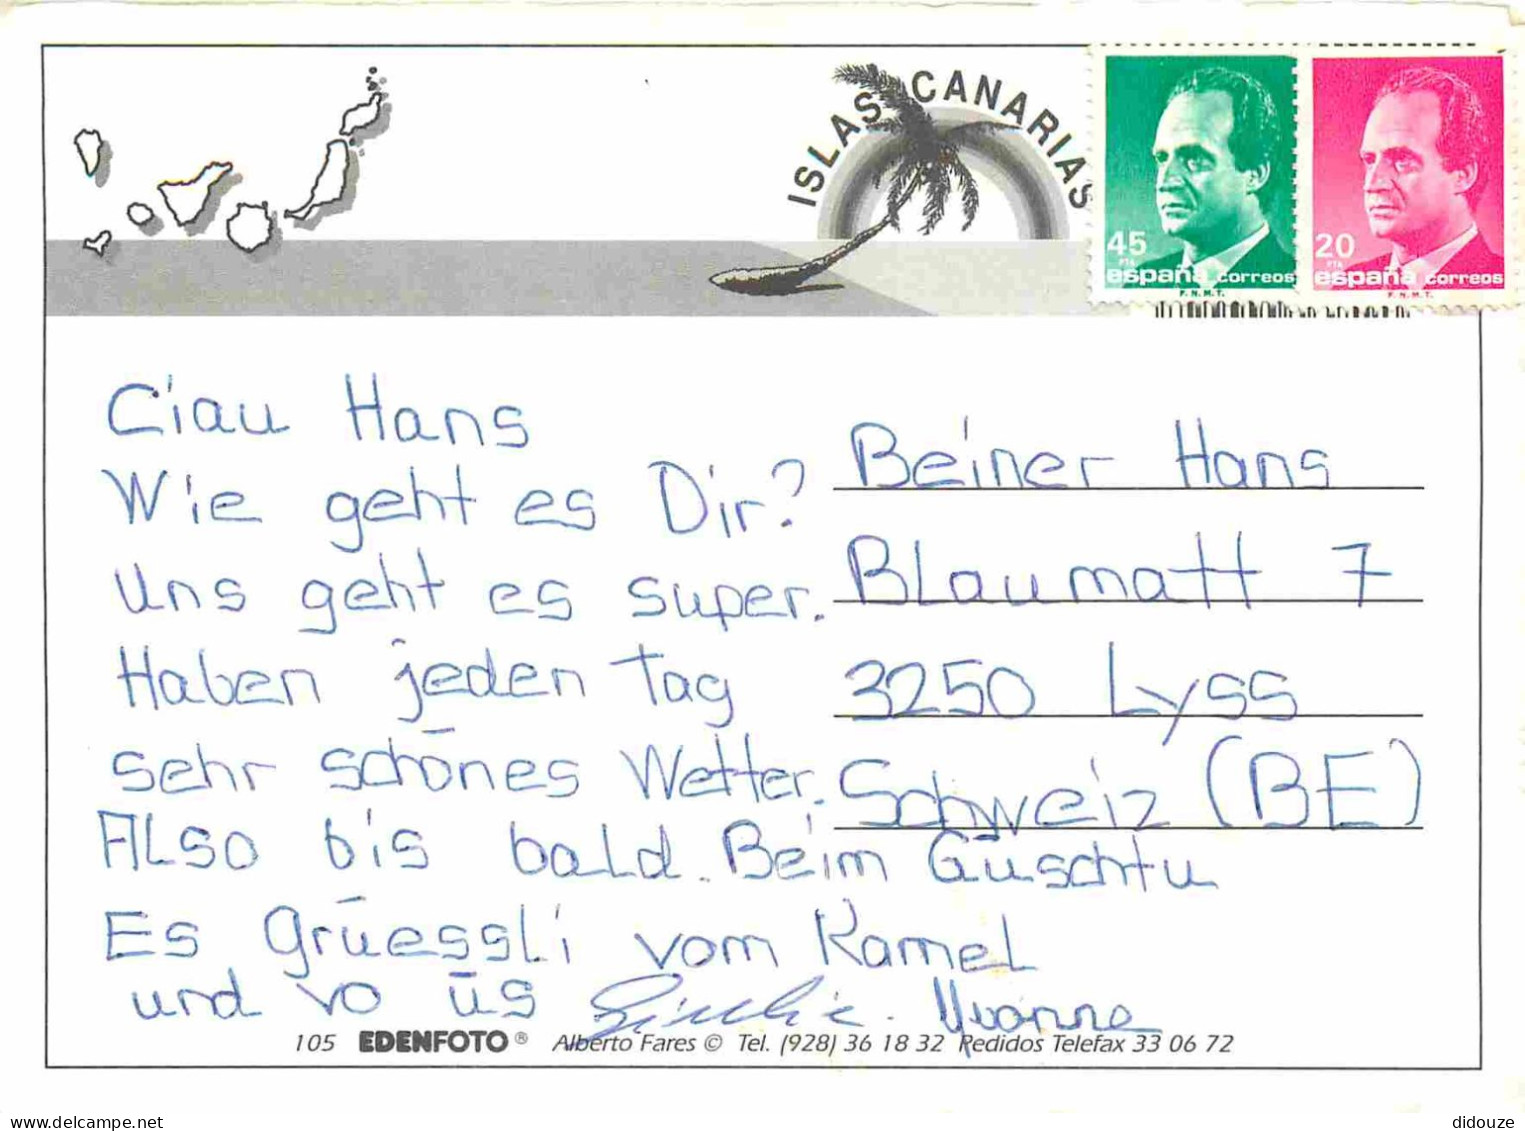 ISLAS CANARIAS
45
PTA
españa correos
F.N.M.T.
20
PTA
españa correos
F.N.M.T.
Ciau Hans
Wie geht es Dir?
Uns geht es super.
Haben jeden Tag
sehr schönes Wetter.
Also bis bald. Beim Güschtu
Es grüessli vom Kamel
und vo üs Yvonne
Beiner Hans
Blaumatt 7
3250 Lyss
Schweiz (BE)
105 EDENFOTO® Alberto Fares © Tel. (928) 36 18 32 Pedidos Telefax 33 06 72
didouze